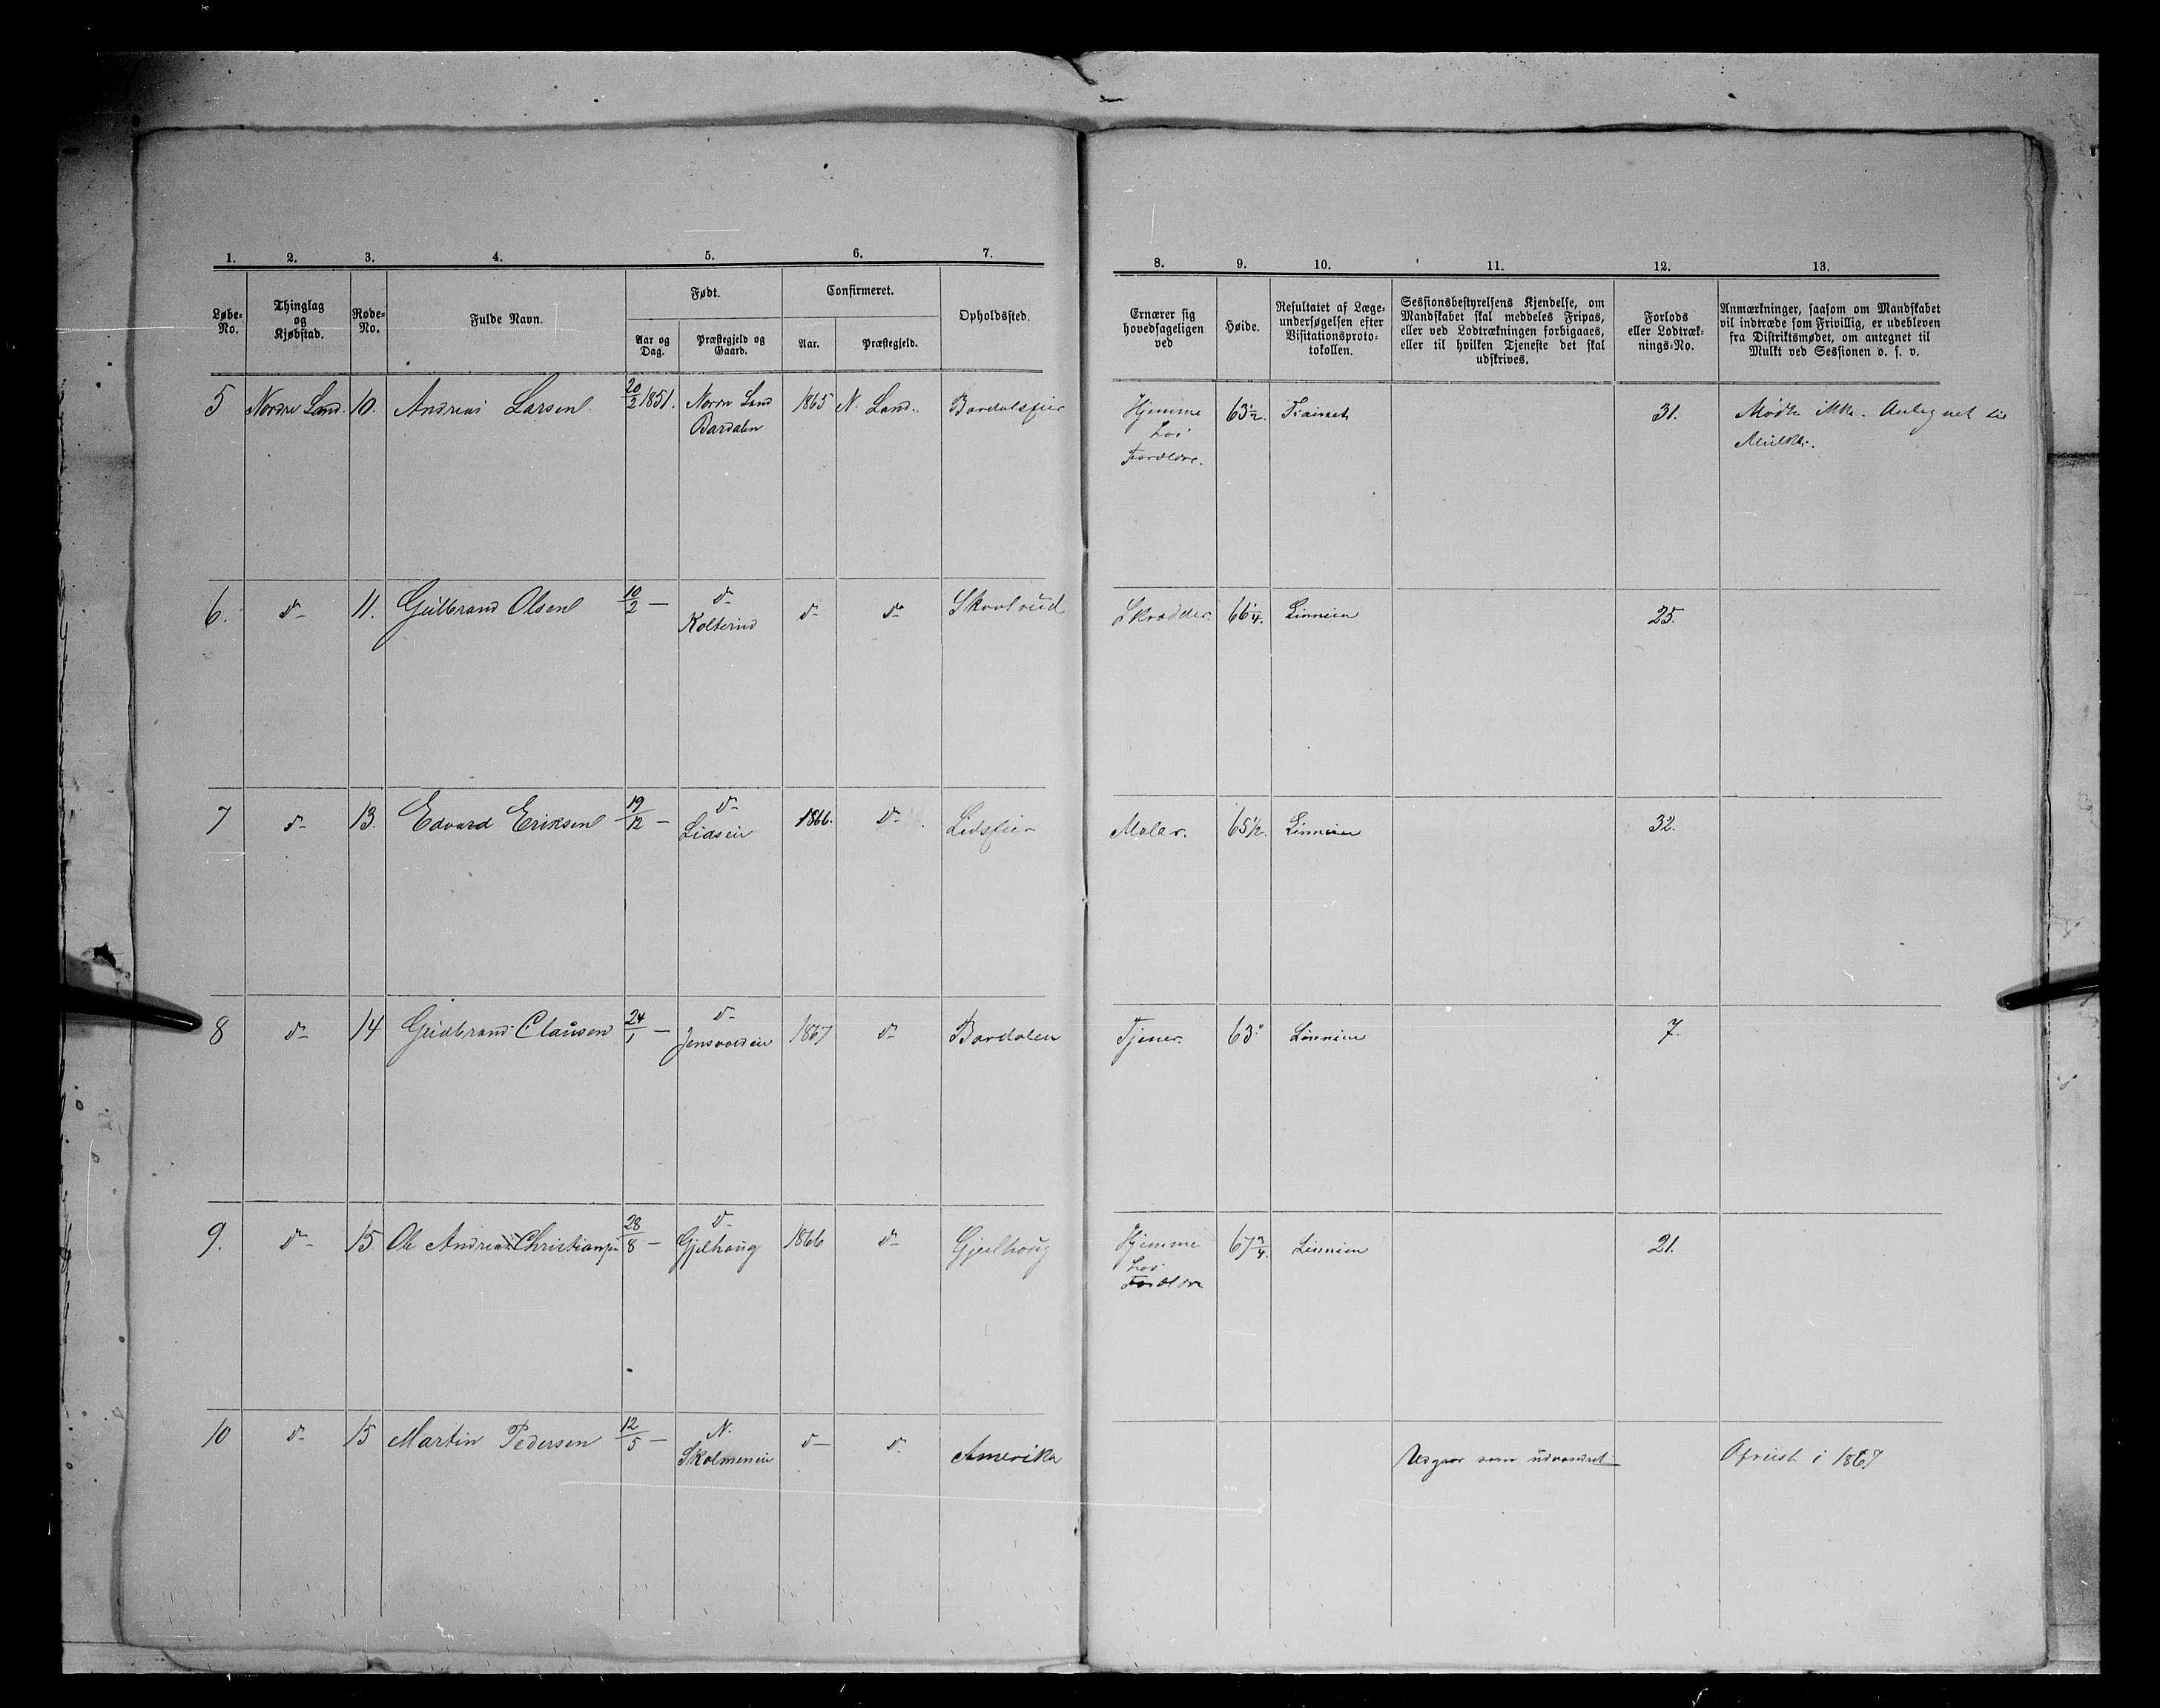 1. 2. 3. 4. 5. 6. 7.
Løbe-No. Thinglag og Kjøbstad. Rode-No. Fulde Navn. Født. Confirmeret. Opholdssted.
Aar og Dag. Præstegjeld og Gaard. Aar. Præstegjeld.
8. 9. 10. 11. 12. 13.
Ernærer sig hovedsageligen ved
Høide.
Resultatet af Læge-undersøgelsen efter Visitationsproto-tokollen.
Sessionsbestyrelsens Kjendelse, om Mandskabet skal meddeles Fripas, eller ved Lodtrækningen forbigaaes, eller til hvilken Tjeneste det skal udskrives.
Forlods eller Lodtræk-nings-No.
Anmærkninger, saasom om Mandskabet vil indtræde som Frivillig, er udebleven fra Distriktsmødet, om antegnet til Mulkt ved Sessionen o. s. v.
5 Nordre Land. 10. Andreas Larsen 20/2 1851. Nordre Land 1865 N. Land. Bardalseier Hjemme 63 1/2. Trainet 31. Mødte ikke. Antegnet til
Bardalen hos Mulkt.
Forældre.
6. do 11. Gulbrand Olsen 10/2 — do do do Skrædder. 66 1/4. Linnien 25.
Kolterud
7 do 13. Edvard Eriksen 19/12 — do 1866. do Lidseier Maler. 65 1/2. Linnien 32.
Lidseier
8 do 14 Gulbrand Clausen 24/1 — do 1867 do Bardalen Tjener. 63" Linnien 7.
9. do 15 Ole Andreas Christiansen 28/8 — do 1866 do Gjelhoug Hjemme 67 3/4. Linnien 21.
Gjelhoug hos
Forældre
10 do 15 Martin Pedersen 12/5 — N. do do Amerika Udgaar som udvandret Afreist i 1867